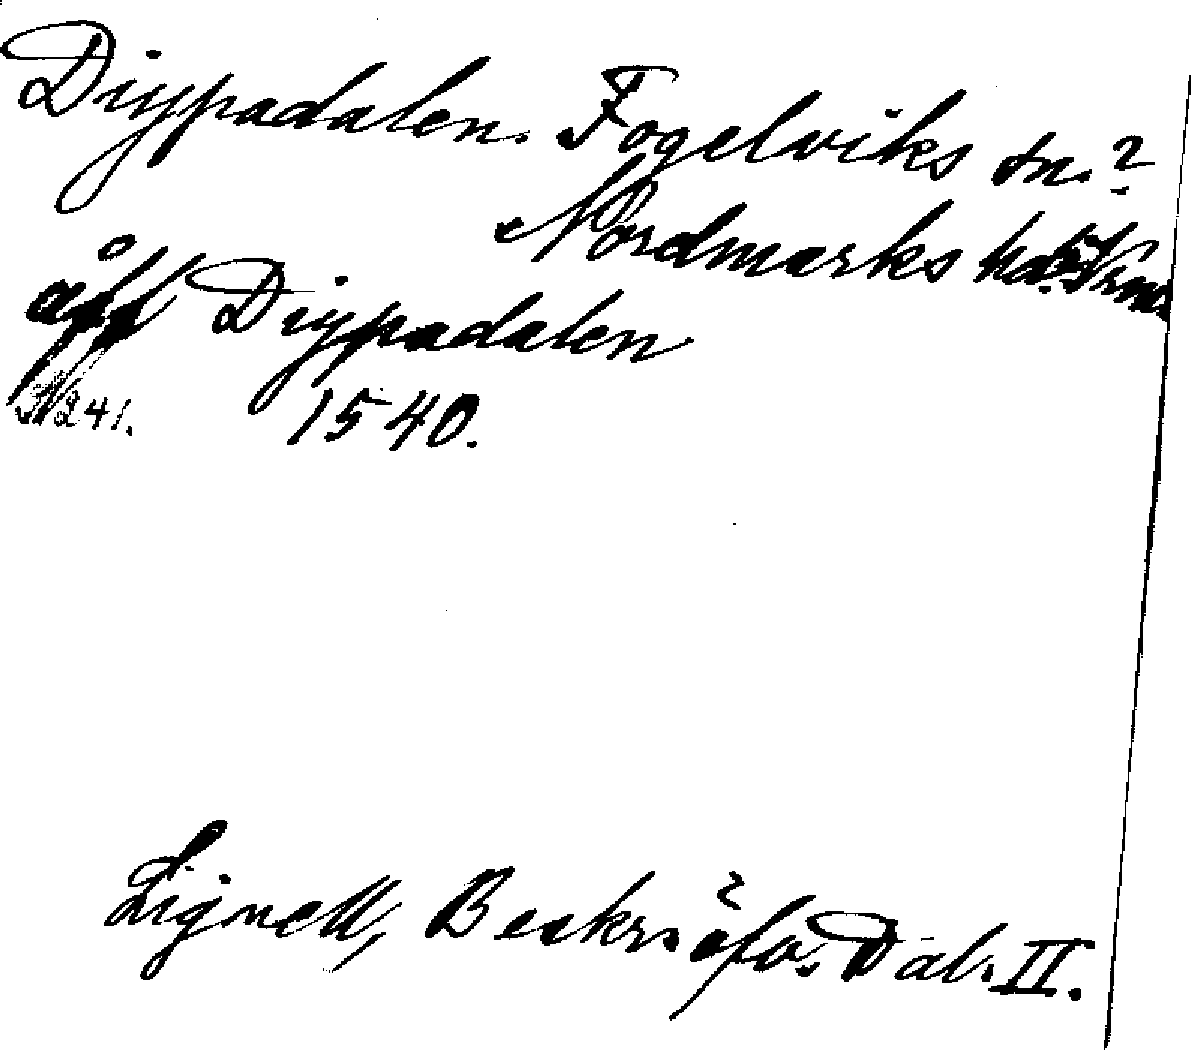 Diypadalen. Fogelviks sn.?
Nordmarks hd. Vrml.
åff Diypadalen
S/241. 1540.
Lignell, Beskr. öfv. Dal. II.